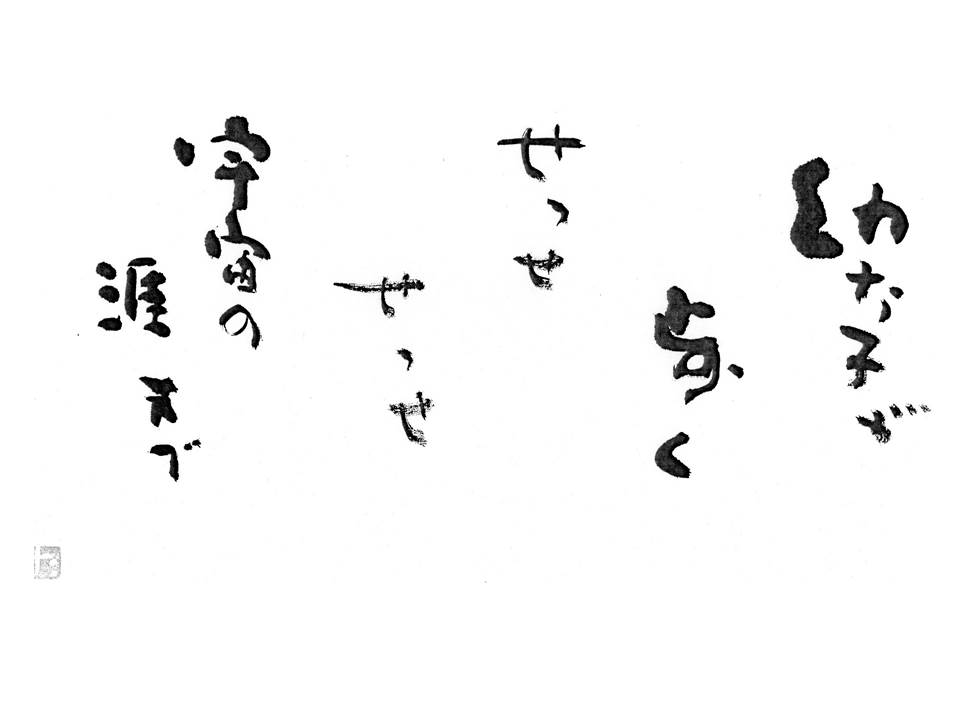 幼な子が
歩く
せっせ
せっせ
宇宙の
涯まで